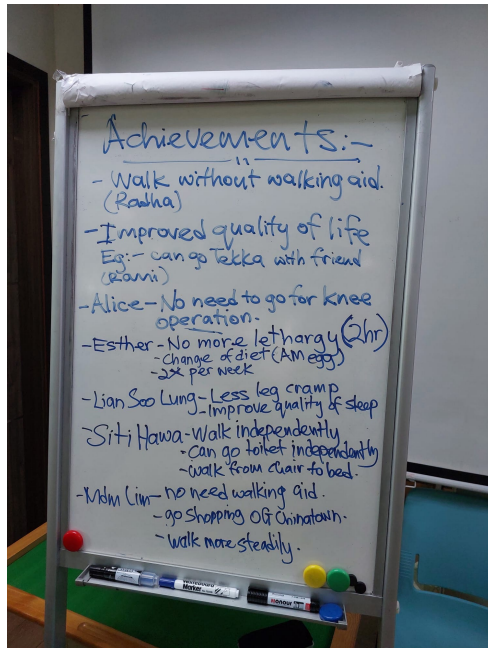 Achievements:-
- Walk without walking aid.
(Radha)
- Improved quality of life
Eg:- can go Tekka with friend
(Rani)
- Alice - No need to go for knee
operation.
- Esther - No more lethargy (2hr)
- Change of diet (AM egg)
- 2x per week
- Lian Soo Lung - Less leg cramp
- Improve quality of sleep
- Siti Hawa - Walk independently
- Can go toilet independently
- walk from chair to bed.
- Mdm Lim - no need walking aid.
- go Shopping OG Chinatown.
- Walk more steadily.
Whiteboard
Marker
Honour